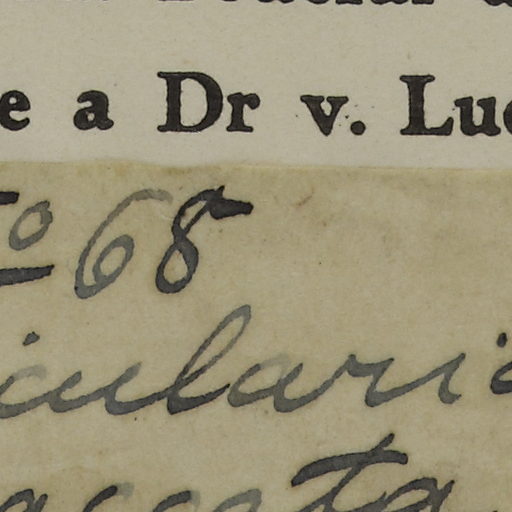 e a Dr v. Luc
o 68
iculari
accata